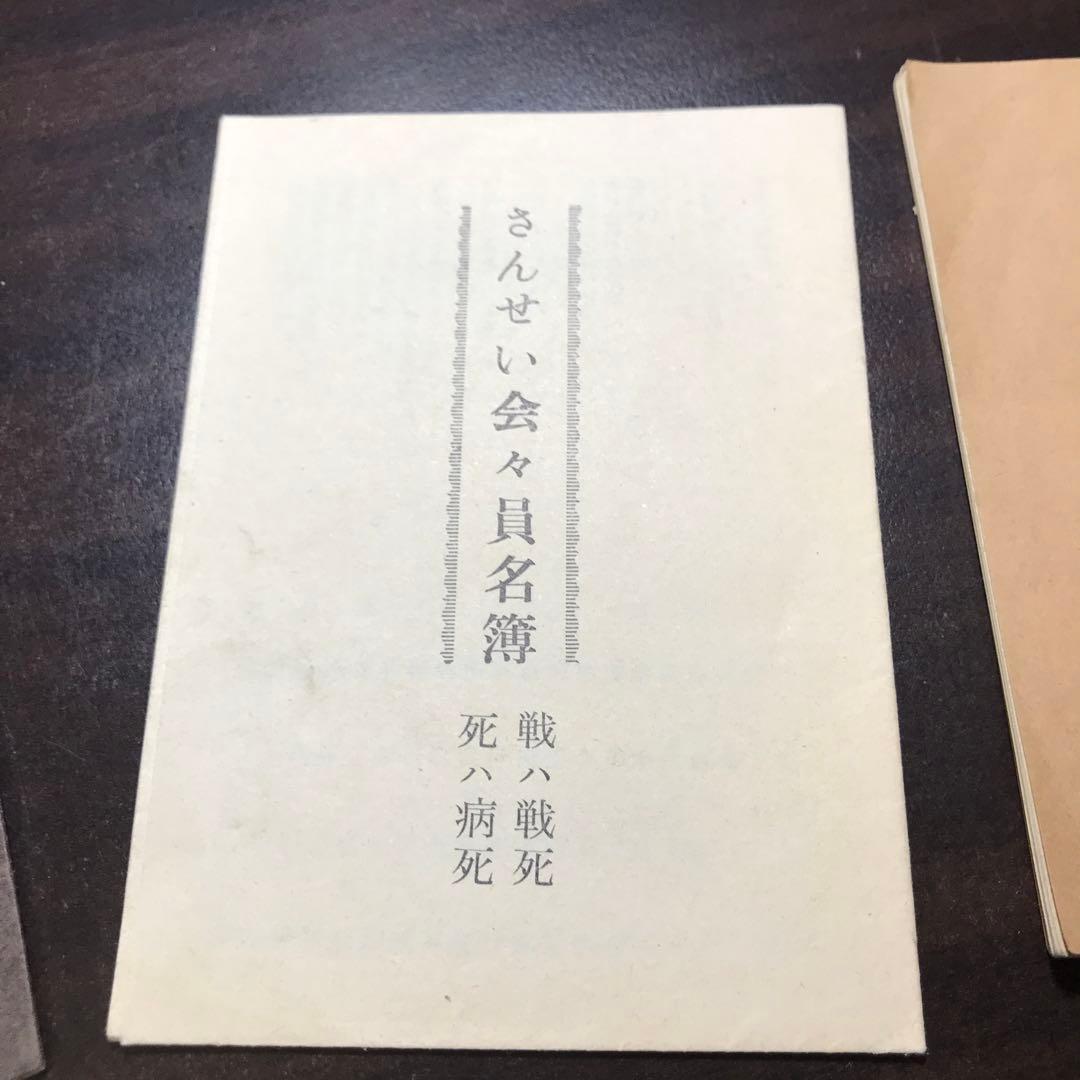 さんせい会々員名簿
戦ハ戦死
死ハ病死